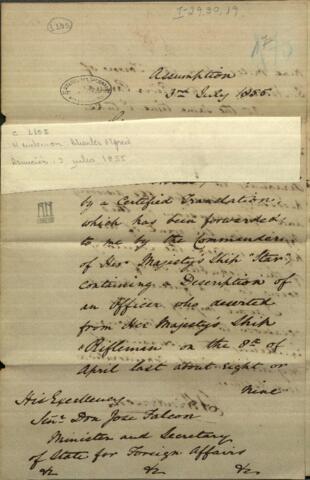 I-29,30,19
Assumption
3rd July 1855.
c 1105
Henderson
Asunción, 3 julio 1855
by a Certified Translation
which has been forwarded
to me by the Commander
of Her Majesty's Ship "Star"
containing a Description of
an Officer who deserted
from Her Majesty's Ship
"Rifleman" on the 8th of
April last about eight or
nine
His Excellency
Senr Don Jose Falcon
Minister and Secretary
of State for Foreign Affairs
&c &c &c